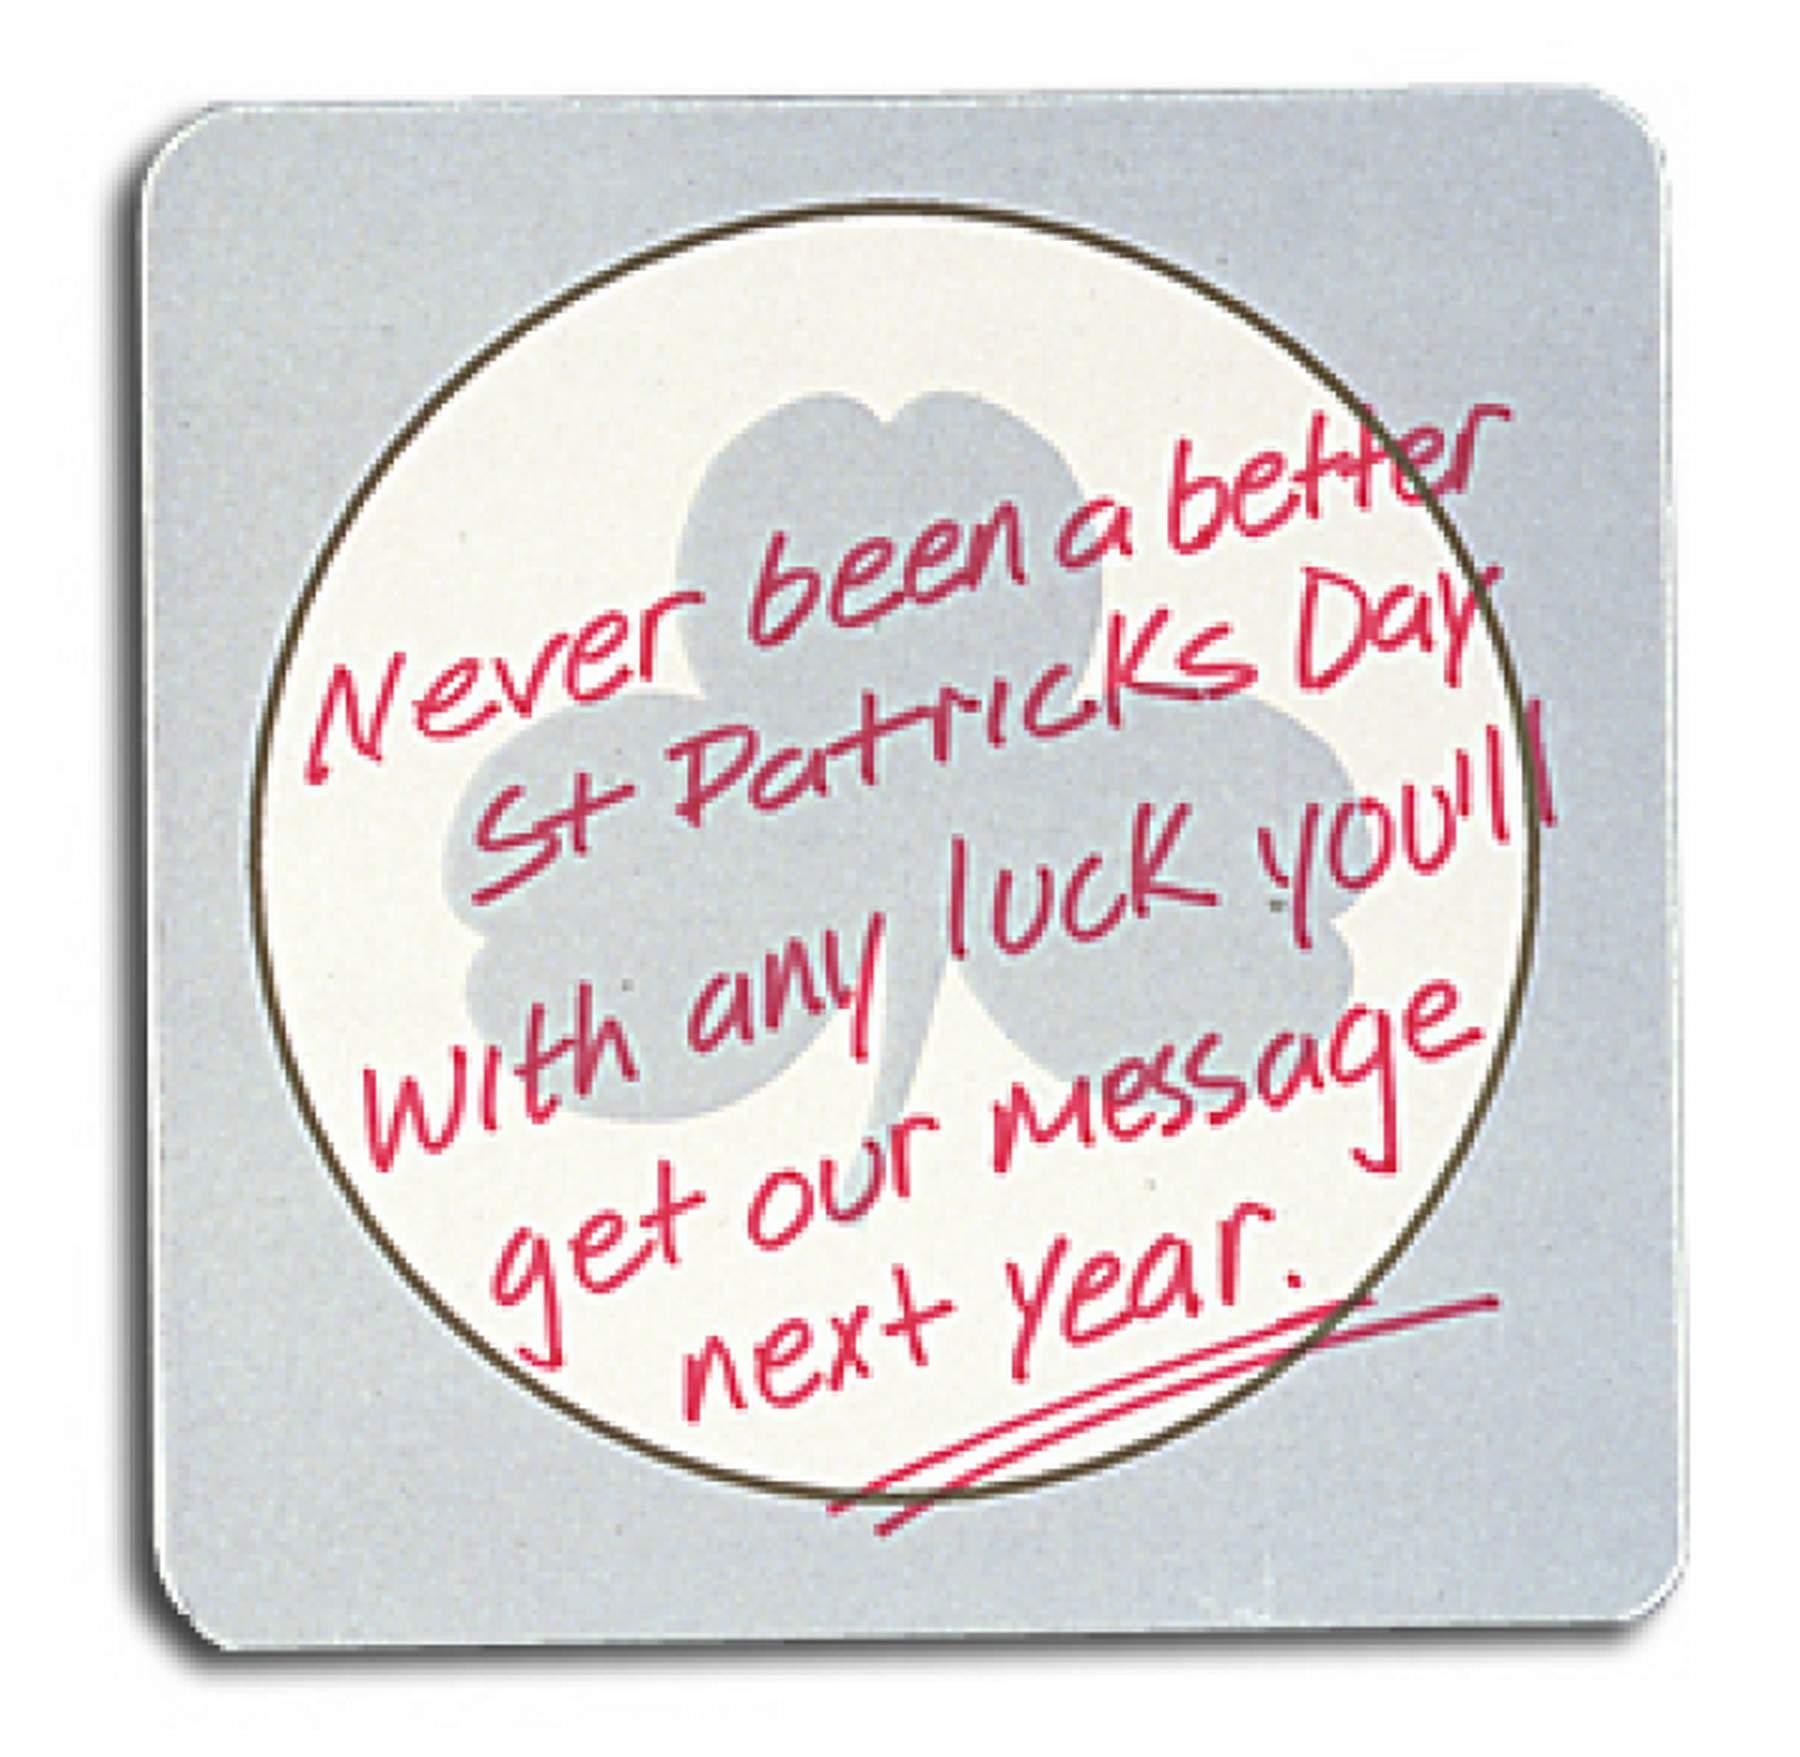 Never been a better
St Patricks Day
With any luck you'll
get our message
next year.